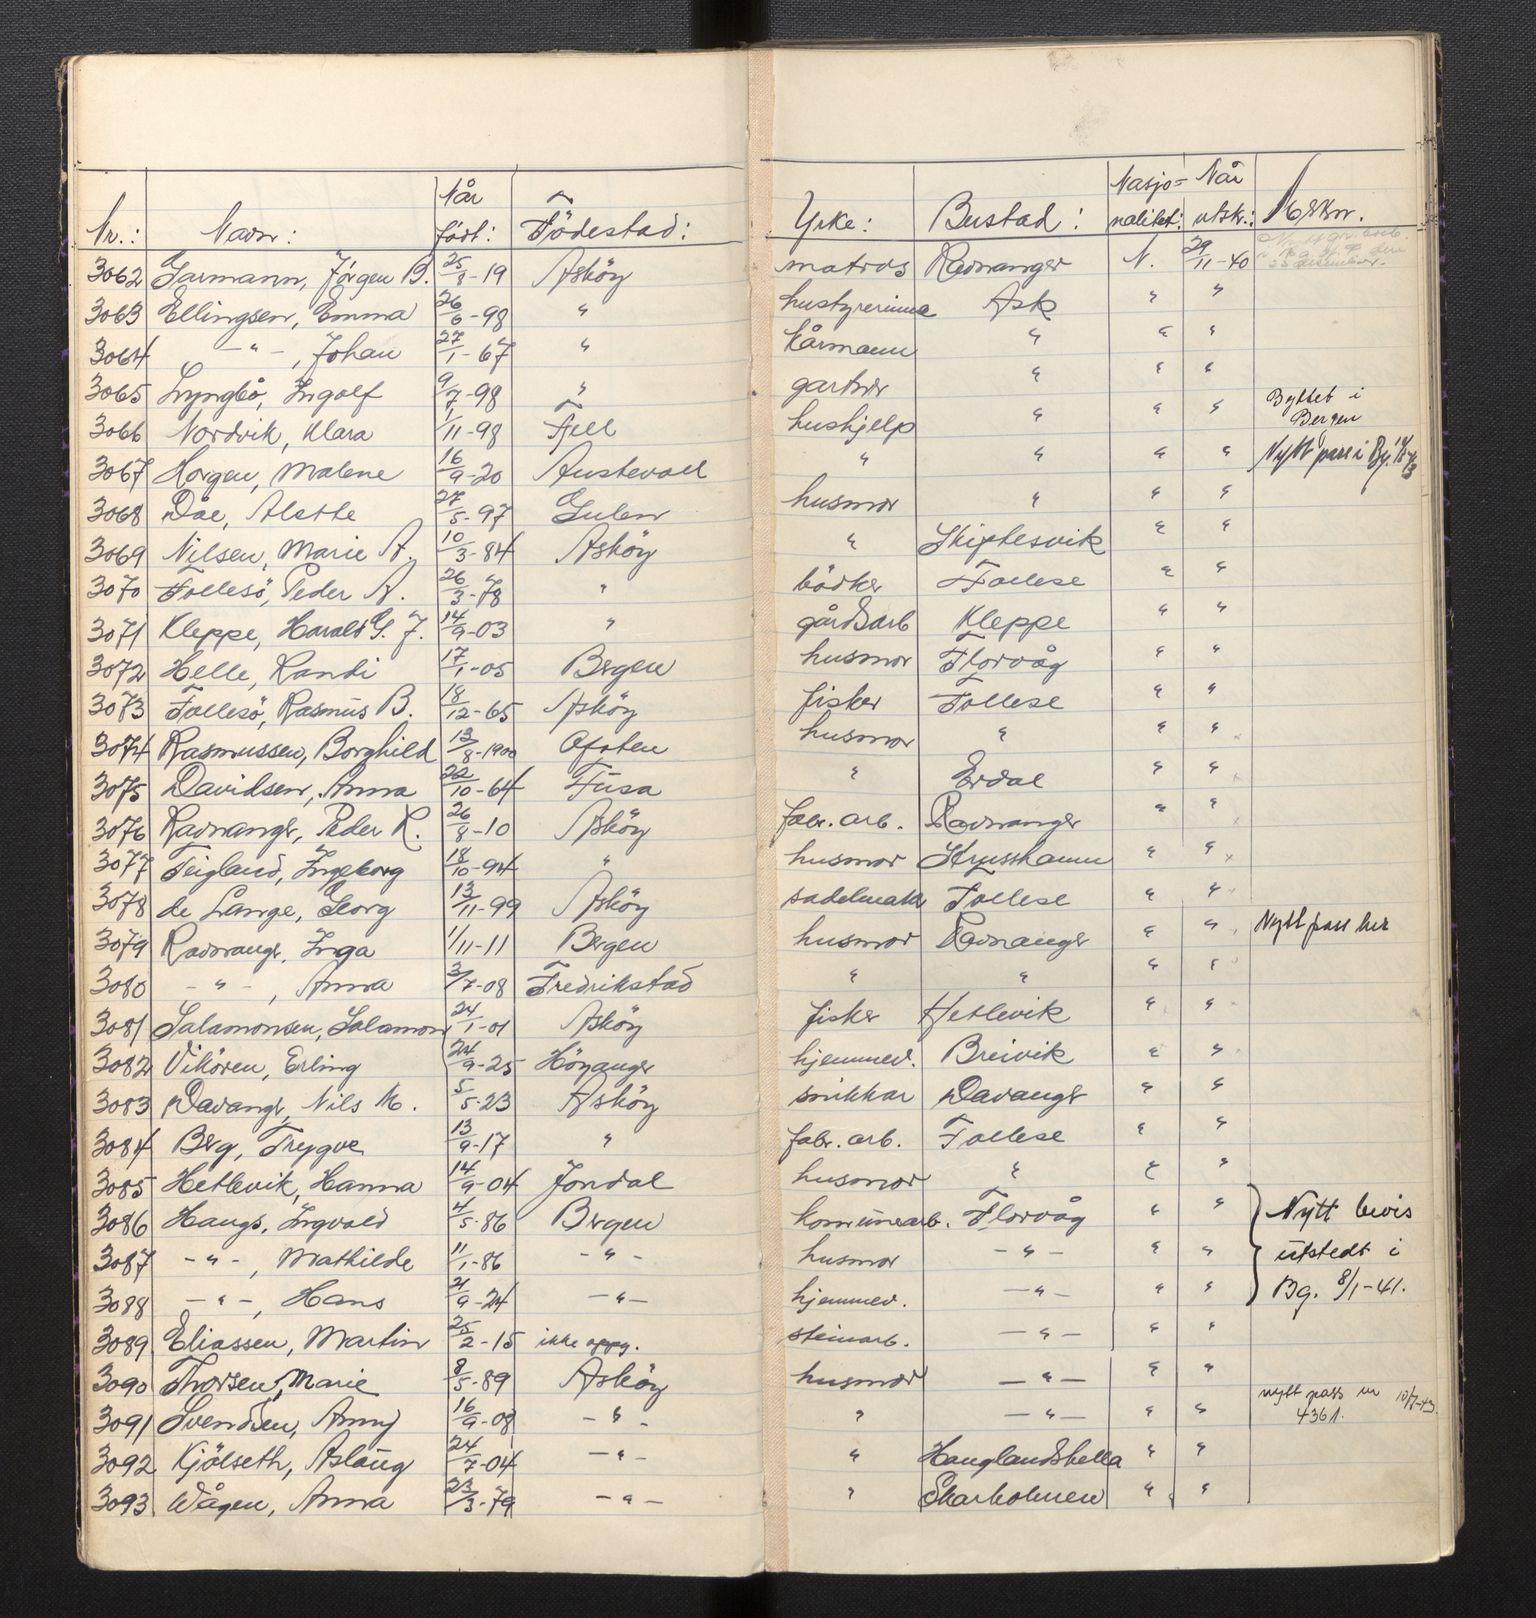 Nr.: Navn: Når født: Födestad: Yrke: Bustad: Nasjo=nalitet: Når utskr.: Merkn.
3062 Garmann, Jørgen B. 25/8-19 Asköy matros Ravnanger N. 29/11-40
3063 Ellingsen, Emma 26/6-98 " hustyrerinne Ask " "
3064 -"-, Johan 27/1-67 " kårmann " " "
3065 Lyngbö, Ingolf 9/7-98 " gartner " " "
3066 Nordvik, Klara 1/11-98 Fjell hushjelp " " " Byttet i Bergen
3067 Horgen, Malene 16/9-20 Austevoll " " " " Nytt pass i By.
3068 Dåe, Alette 27/5-97 Gulen husmor " " "
3069 Nilsen, Marie A. 10/3-84 Asköy " Skiplesvik " "
3070 Follesö, Peder A. 26/3-78 " bödker Follese " "
3071 Kleppe, Harald G. J. 14/9-03 " gårdsarb Kleppe " "
3072 Helle, Randi 17/1-05 Bergen husmor Florvåg " "
3073 Follesö, Rasmus B. 18/12-65 Asköy fisker Follese " "
3074 Rasmussen, Borghild 13/8-1900 Ofoten husmor " " "
3075 Davidsen, Anna 22/10-64 Fusa " Erdal " "
3076 Ravnanger, Peder K. 26/8-10 Asköy fabr. arb. Ravnanger " "
3077 Teigland, Ingeborg 18/10-94 " husmor Strusshamn " "
3078 de Lange, Georg 13/11-99 Asköy sadelmaker Follese " "
3079 Ravnanger, Inga 1/11-11 Bergen husmor Ravnanger " " Nytt pass her
3080 -"-, Anna 3/7-08 Fredrikstad " " " "
3081 Salamonsen, Salamon 24/1-01 Asköy fisker Hetlevik " "
3082 Vikören, Erling 24/9-25 Höyanger hjemmev. Breivik " "
3083 Davanger, Nils M. 5/5-23 Asköy snikkar Davanger " "
3084 Berg, Trygve 13/9-17 " fabr. arb. Follese " "
3085 Hetlevik, Hanna 14/9-04 Jondal husmor " " "
3086 Haugs, Ingvald 4/5-86 Bergen kommunearb. Florvåg " " Nytt bevis
3087 -"-, Mathilde 11/1-86 -"- husmor -"- " " utstedt i
3088 -"-, Hans 21/9-24 -"- hjemmev. -"- " " Bg. 8/1-41.
3089 Eliassen, Martin 25/2-15 ikke oppg. steinarb. -"- " "
3090 Thorsen, Marie 8/5-89 Asköy husmor -"- " "
3091 Svendsen, Anny 16/9-08 -"- " -"- " " nytt pass nr 4361. 10/7-43.
3092 Kjölseth, Aslaug 24/7-04 -"- " Hauglandshella " "
3093 Wågen, Anna 23/3-79 -"- " Skarholmen " "